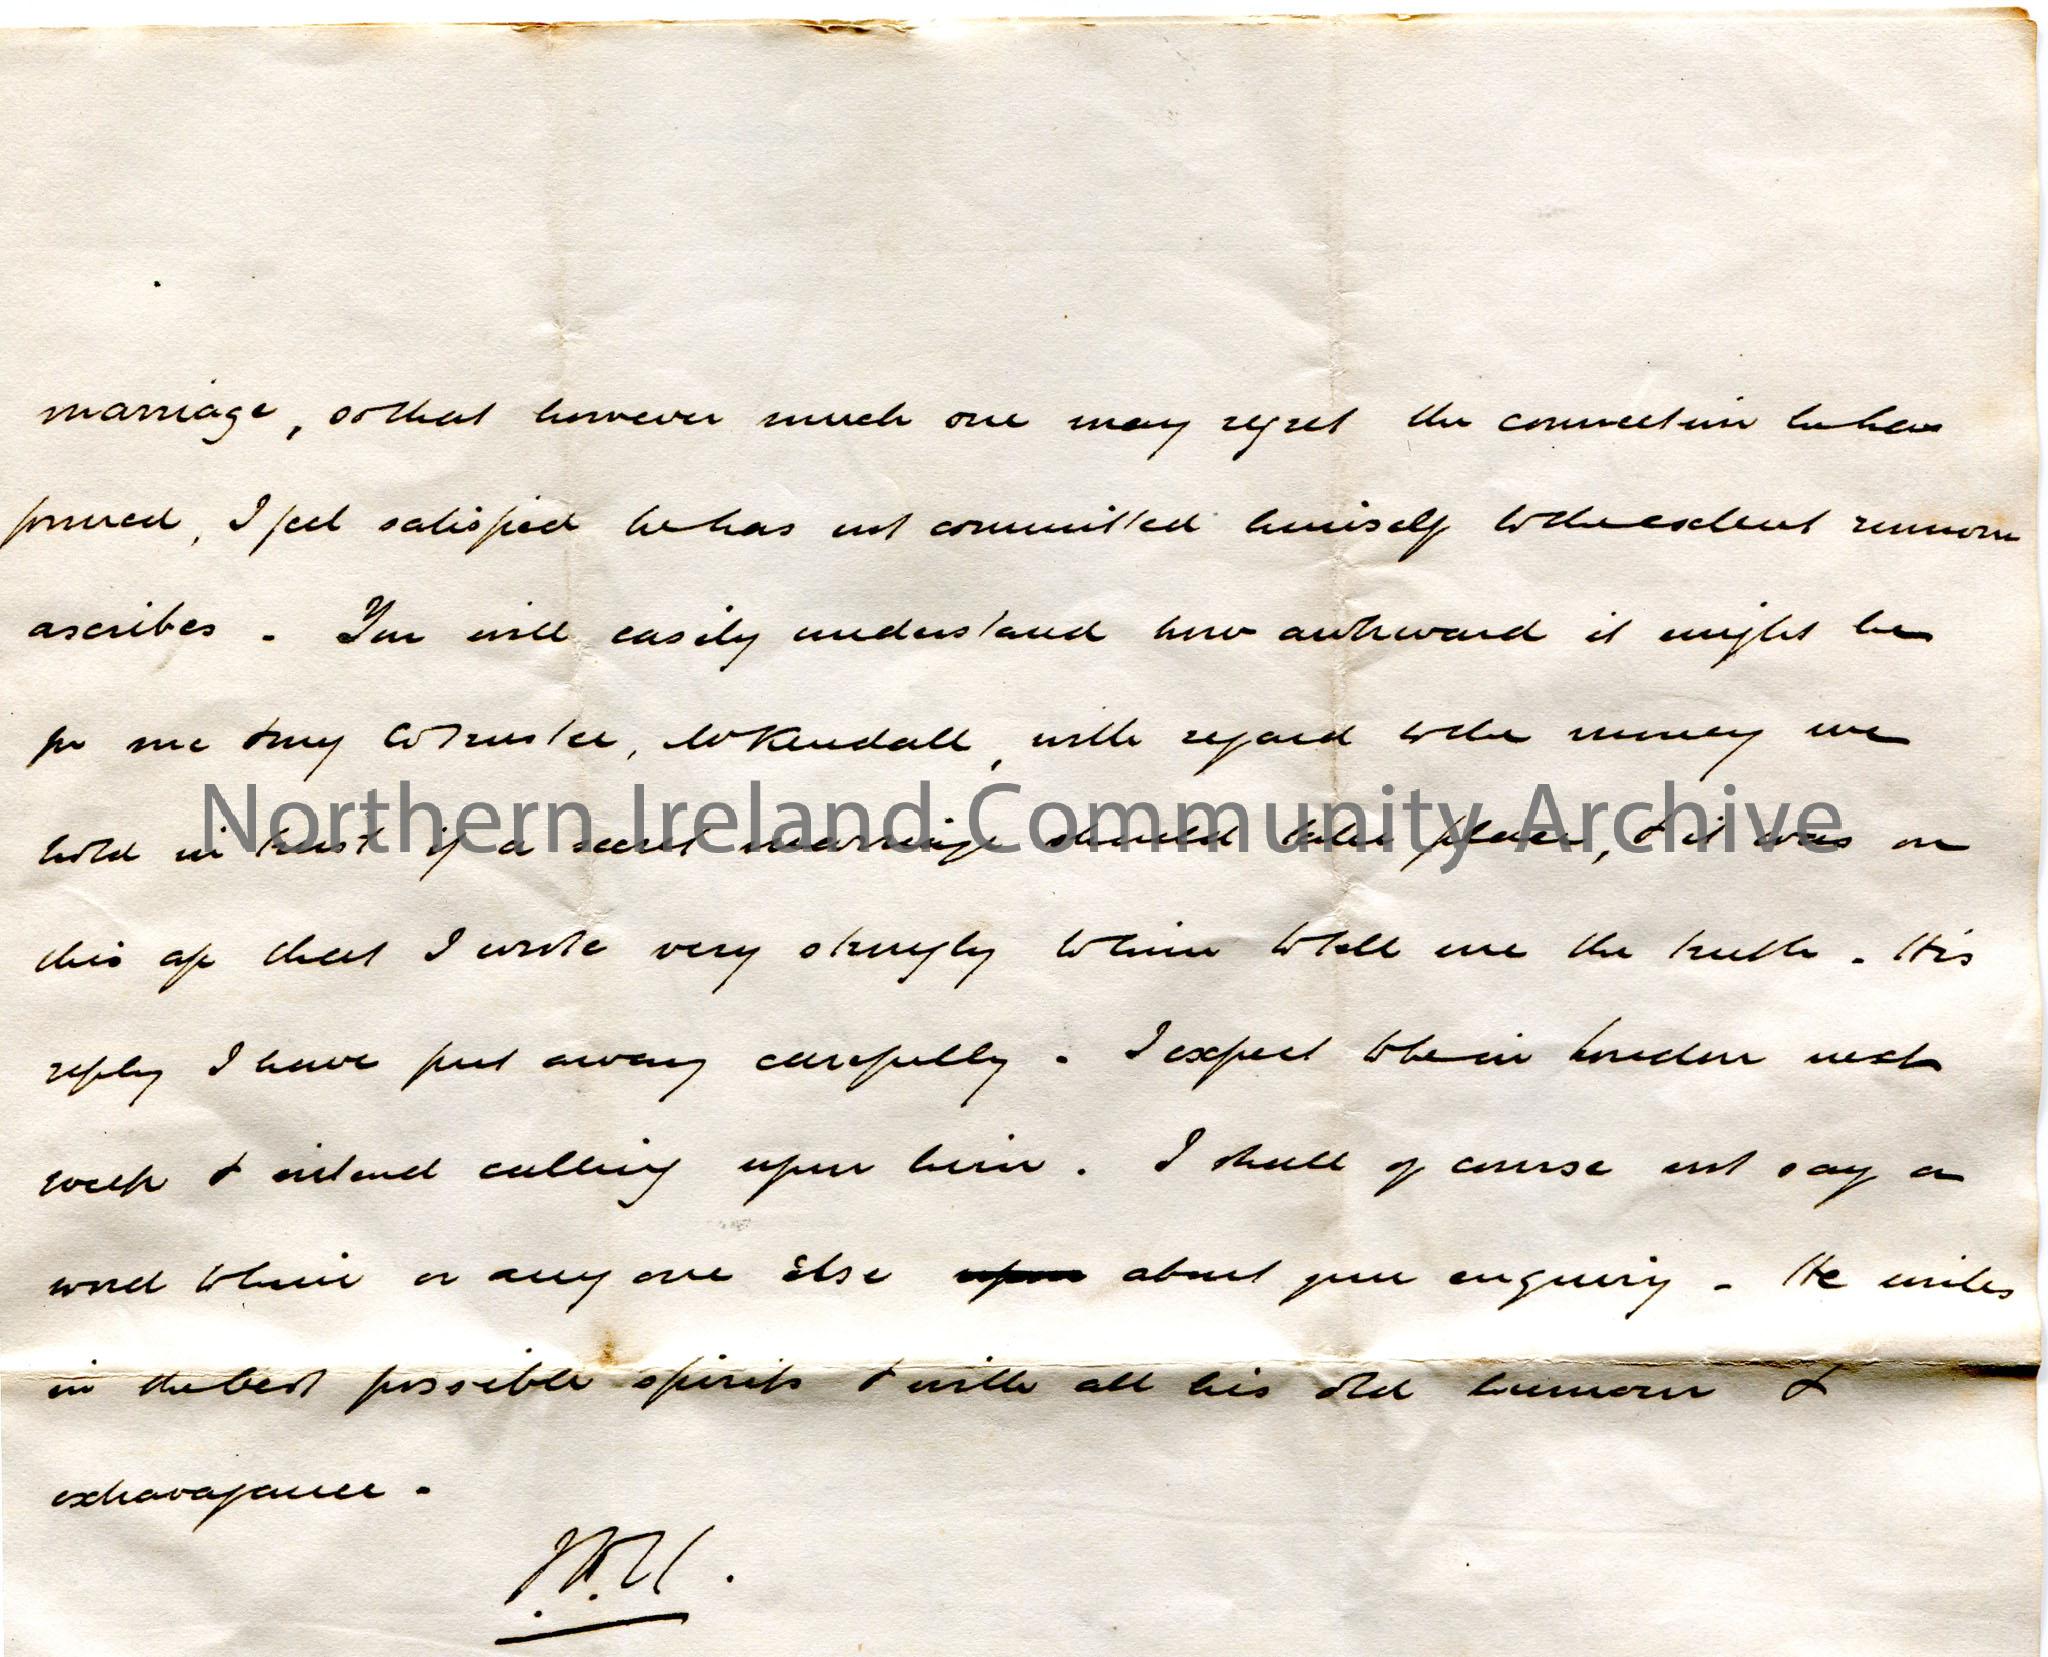 marriage, so that however much one may regret the connection he has
formed, I feel satisfied he has not committed himself to the extent rumour
ascribes. You will easily understand how awkward it might be
for me & my Cotrustee, Mr Kendall, with regard to the money we
Northern Ireland Community Archive
hold in trust if a secret marriage should take place, & it was on
this a/c that I wrote very strongly to him to tell me the truth. His
reply I have put away carefully. I expect to be in London next
week & intend calling upon him. I shall of course not say a
word to him or any one else upon about your enquiry. He writes
in the best possible spirits & with all his old humour &
extravagance.